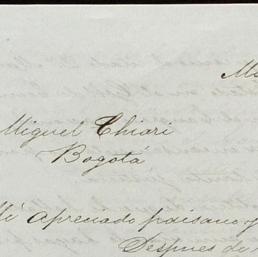 Miguel Chiari
Bogotá
Mi apreciado paisano y
Despues de